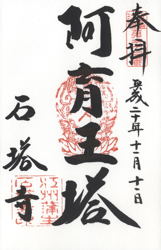 奉拝
平成二十年十一月十二日
阿育王塔
石塔寺